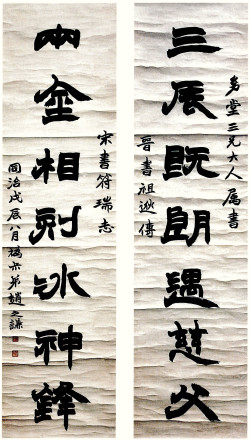 堂三兄大人属書
三辰既朗遇慈父
晉書祖逖傳
宋書符瑞志
兩金相刻神鋒
同治戊辰八月撝尗弟趙之謙